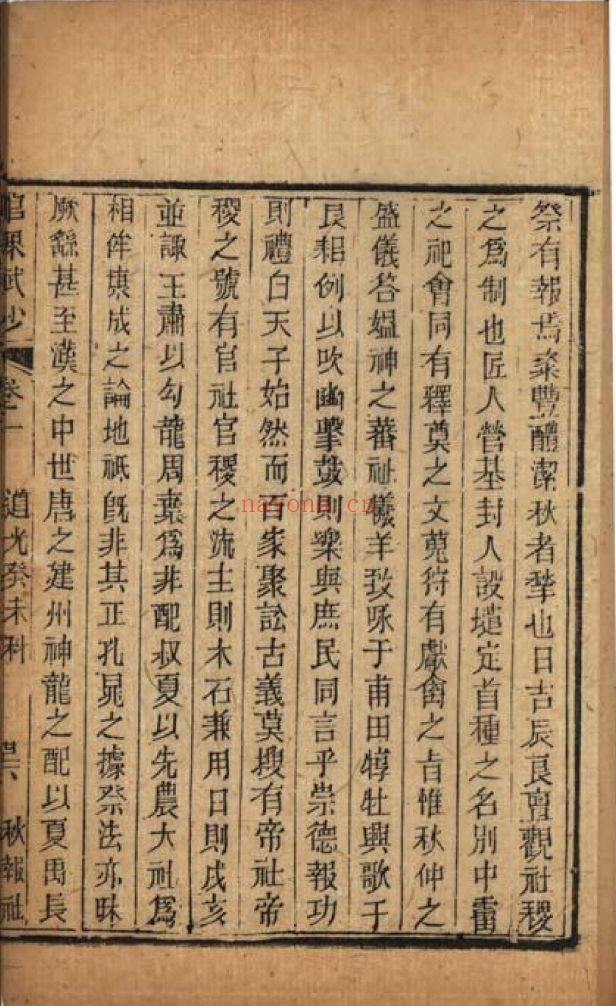 祭有報焉粢豐醴潔秋者揫也日吉辰良亶觀社稷
之爲制也匠人營基封人設壝定首種之名別中霤
之祀會同有釋奠之文蒐狩有獻禽之旨惟秋仲之
盛儀荅媼神之蕃祉犧羊致咏于甫田犉牡興歌于
良耜例以吹豳擊鼓則樂與庶民同言乎崇德報功
則禮自天子始然而百家聚訟古義莫搜有帝社帝
稷之號有官社官稷之流主則木石兼用日則戌亥
並諏王肅以勾龍周棄爲非配叔夏以先農大社爲
相侔與成之論地祇旣非其正孔晁之據祭法亦昧
厥繇甚至漢之中世唐之建州神龍之配以夏禹長
館課賦少 卷一 道光癸未科 秋報社
nayona.cn